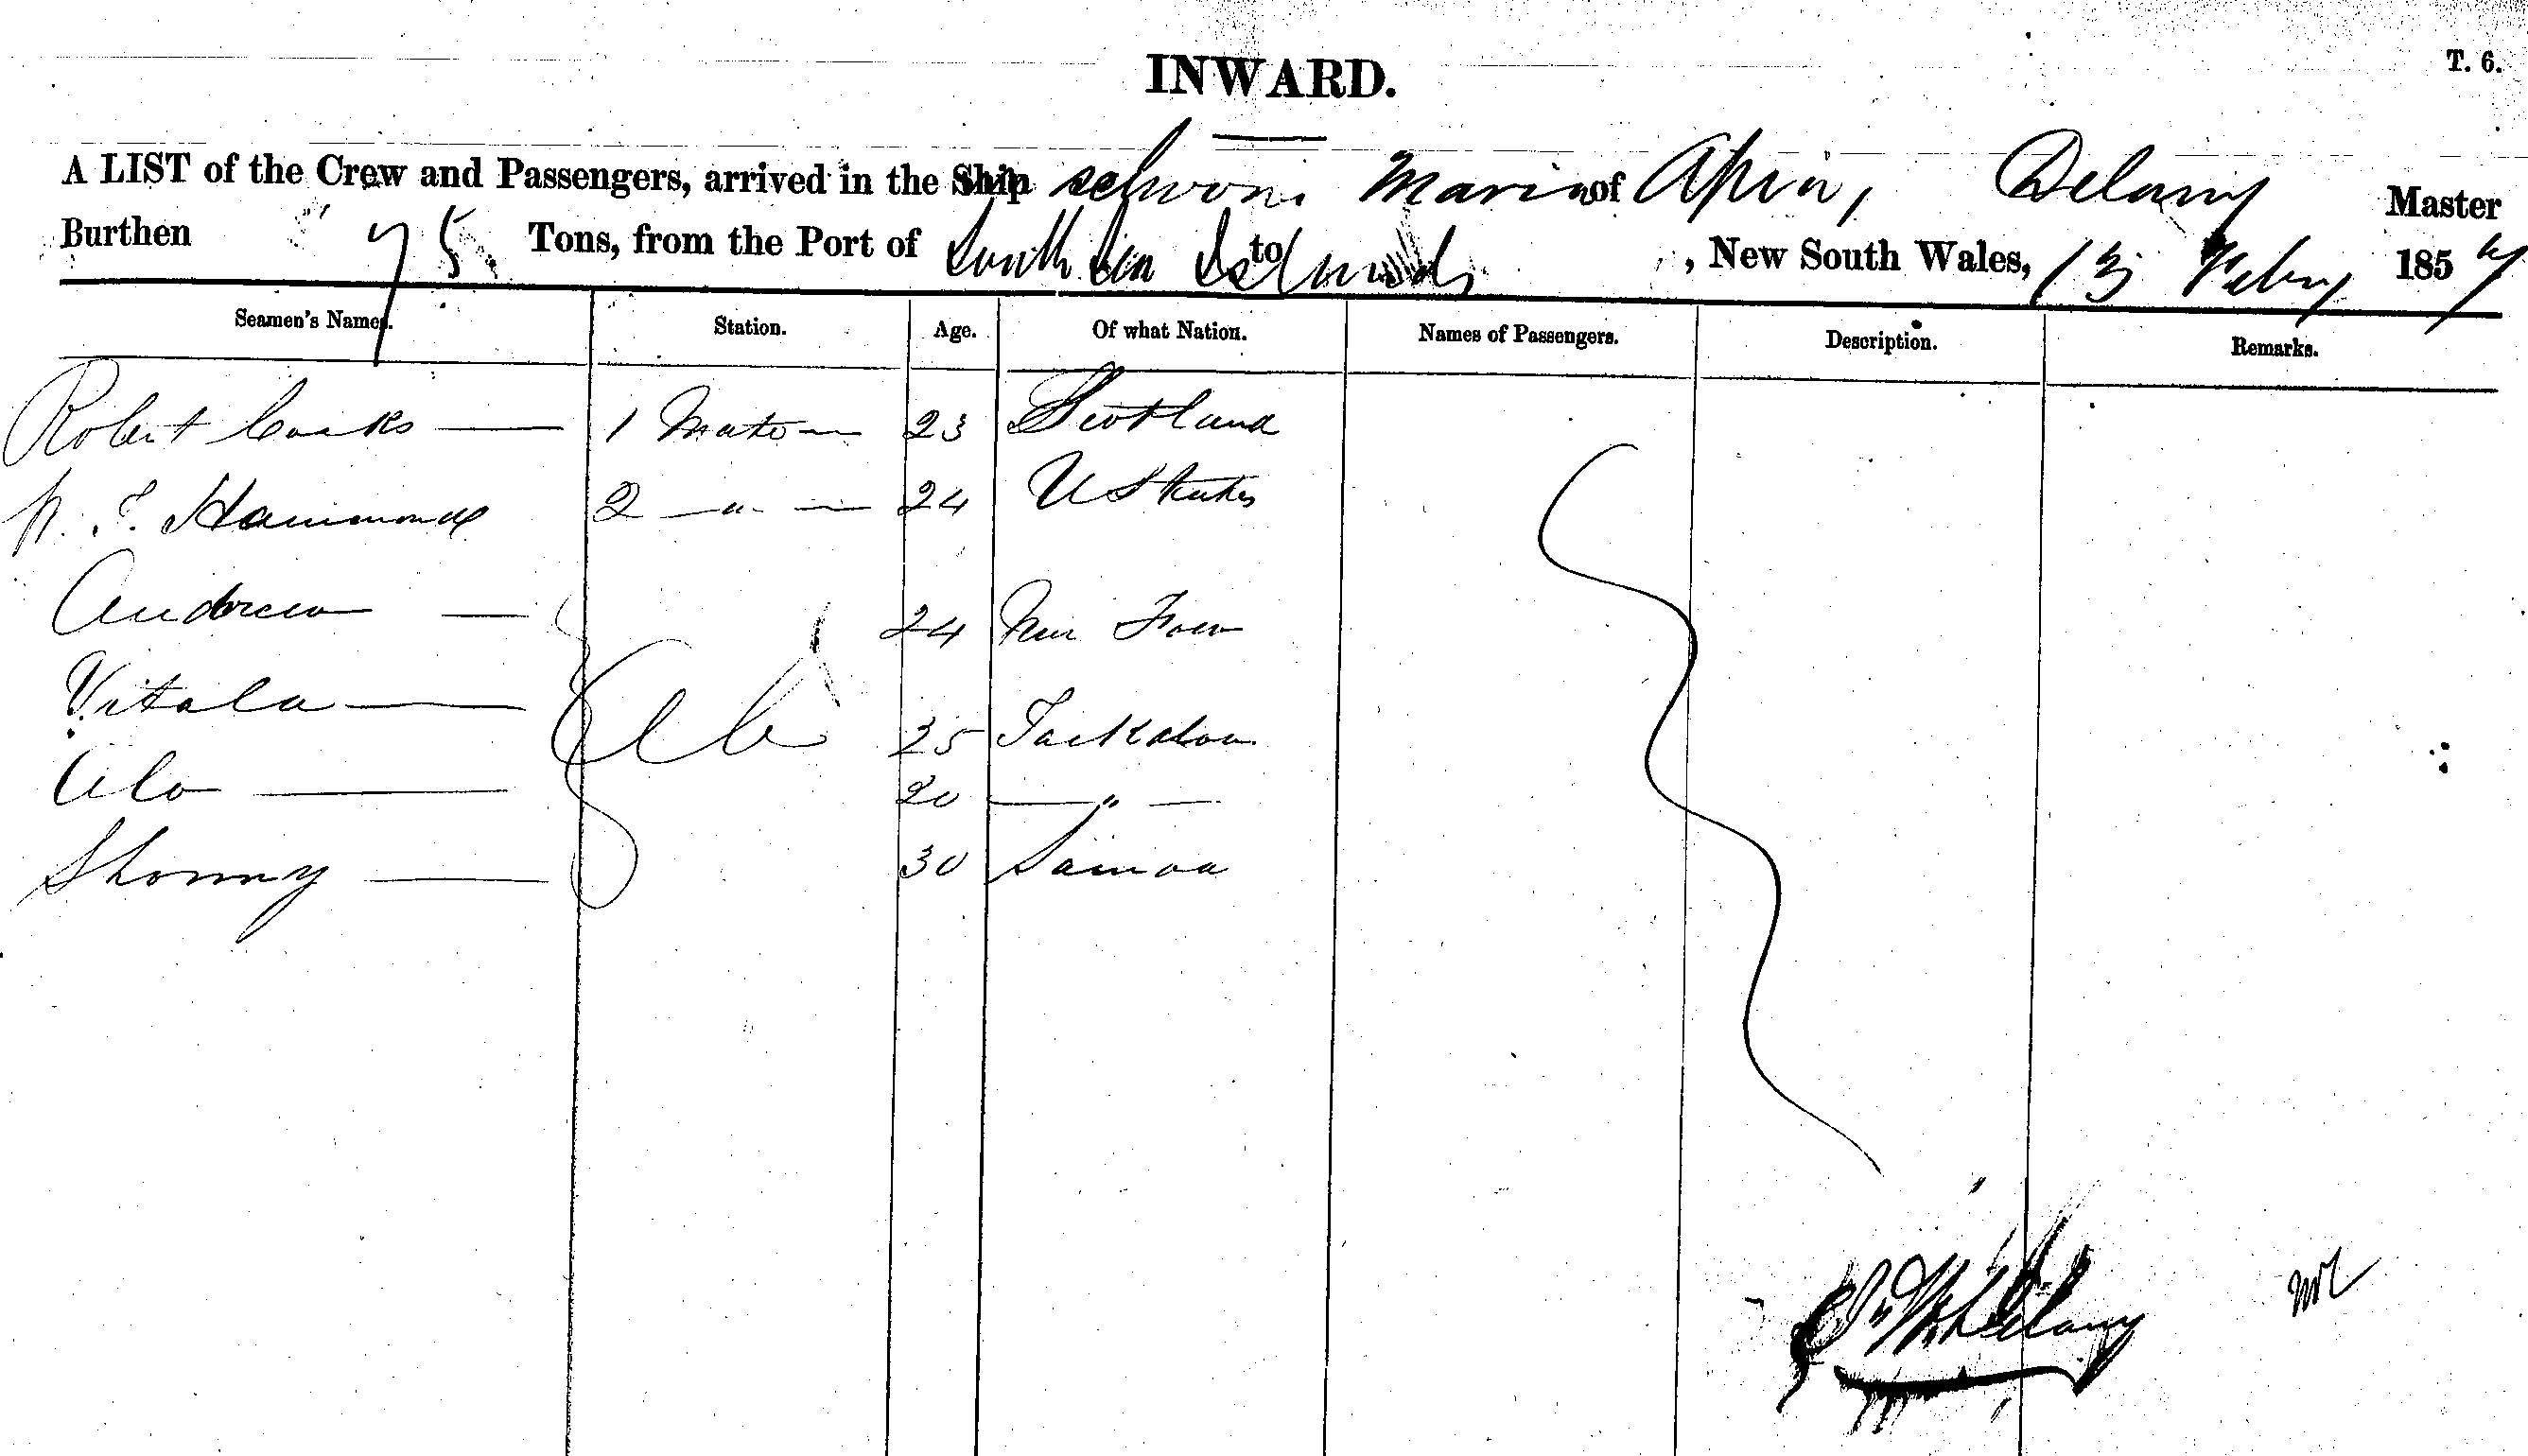 INWARD.
T. 6.
A LIST of the Crew and Passengers, arrived in the Ship schoon. Maria of Apia, Delany Master
Burthen 75 Tons, from the Port of South Sea Islands to , New South Wales, 13 Feby 1857
Seamen's Names. Station. Age. Of what Nation. Names of Passengers. Description. Remarks.
Robert Cooks 1 Mate 23 Scotland
Hammond 2 — " — 24 U States
Andrew 24
Vitala A B 25
Alo 20 — " —
Shonny 30 Samoa
Delany